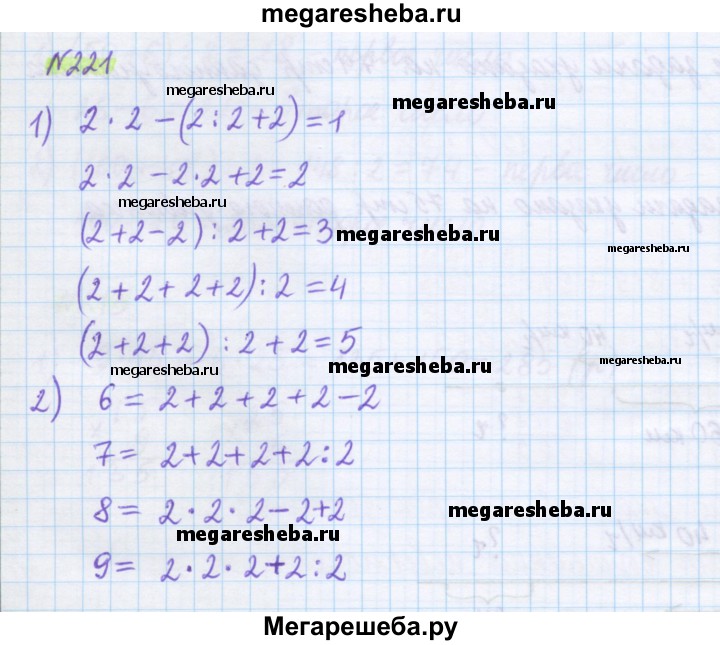 megaresheba.ru
№221
megaresheba.ru
megaresheba.ru
1) 2 · 2 - (2 : 2 + 2) = 1
2 · 2 - 2 · 2 + 2 = 2
megaresheba.ru
(2 + 2 - 2) : 2 + 2 = 3
megaresheba.ru
megaresheba.ru
(2 + 2 + 2 + 2) : 2 = 4
(2 + 2 + 2) : 2 + 2 = 5
megaresheba.ru
megaresheba.ru
megaresheba.ru
2) 6 = 2 + 2 + 2 + 2 - 2
7 = 2 + 2 + 2 + 2 : 2
8 = 2 · 2 · 2 - 2 + 2
megaresheba.ru
megaresheba.ru
9 = 2 · 2 · 2 + 2 : 2
Мегарешеба.ру